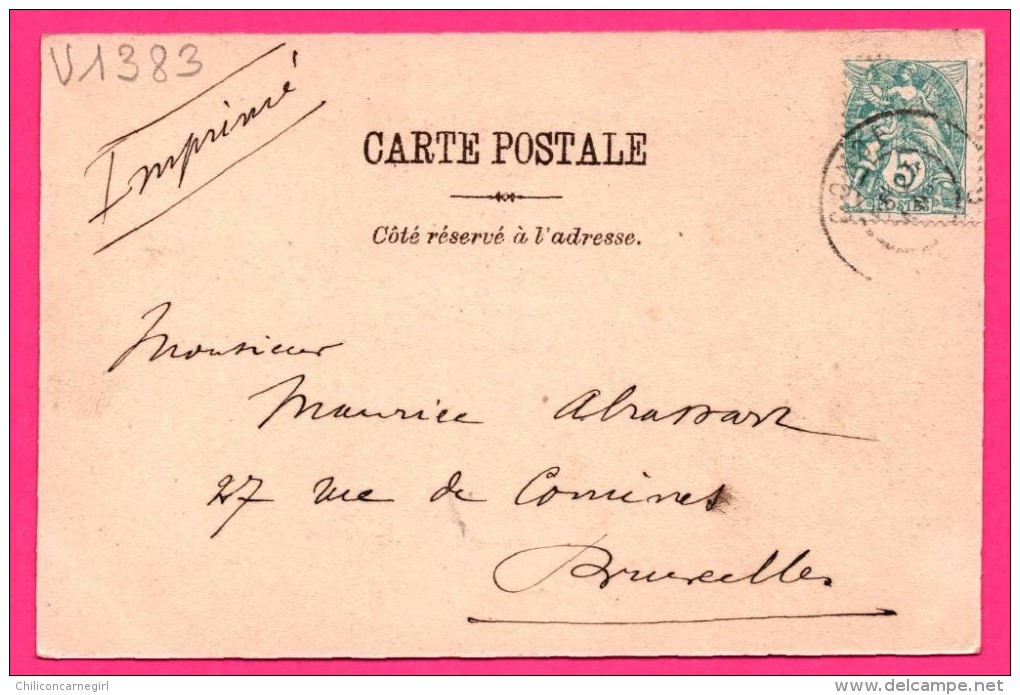 V1383
Imprimé
CARTE POSTALE
Côté réservé à l'adresse.
5
POSTES
Monsieur
Maurice Abrassart
27 rue de Comines
Bruxelles
Chiliconcarnegirl
www.delcampe.net